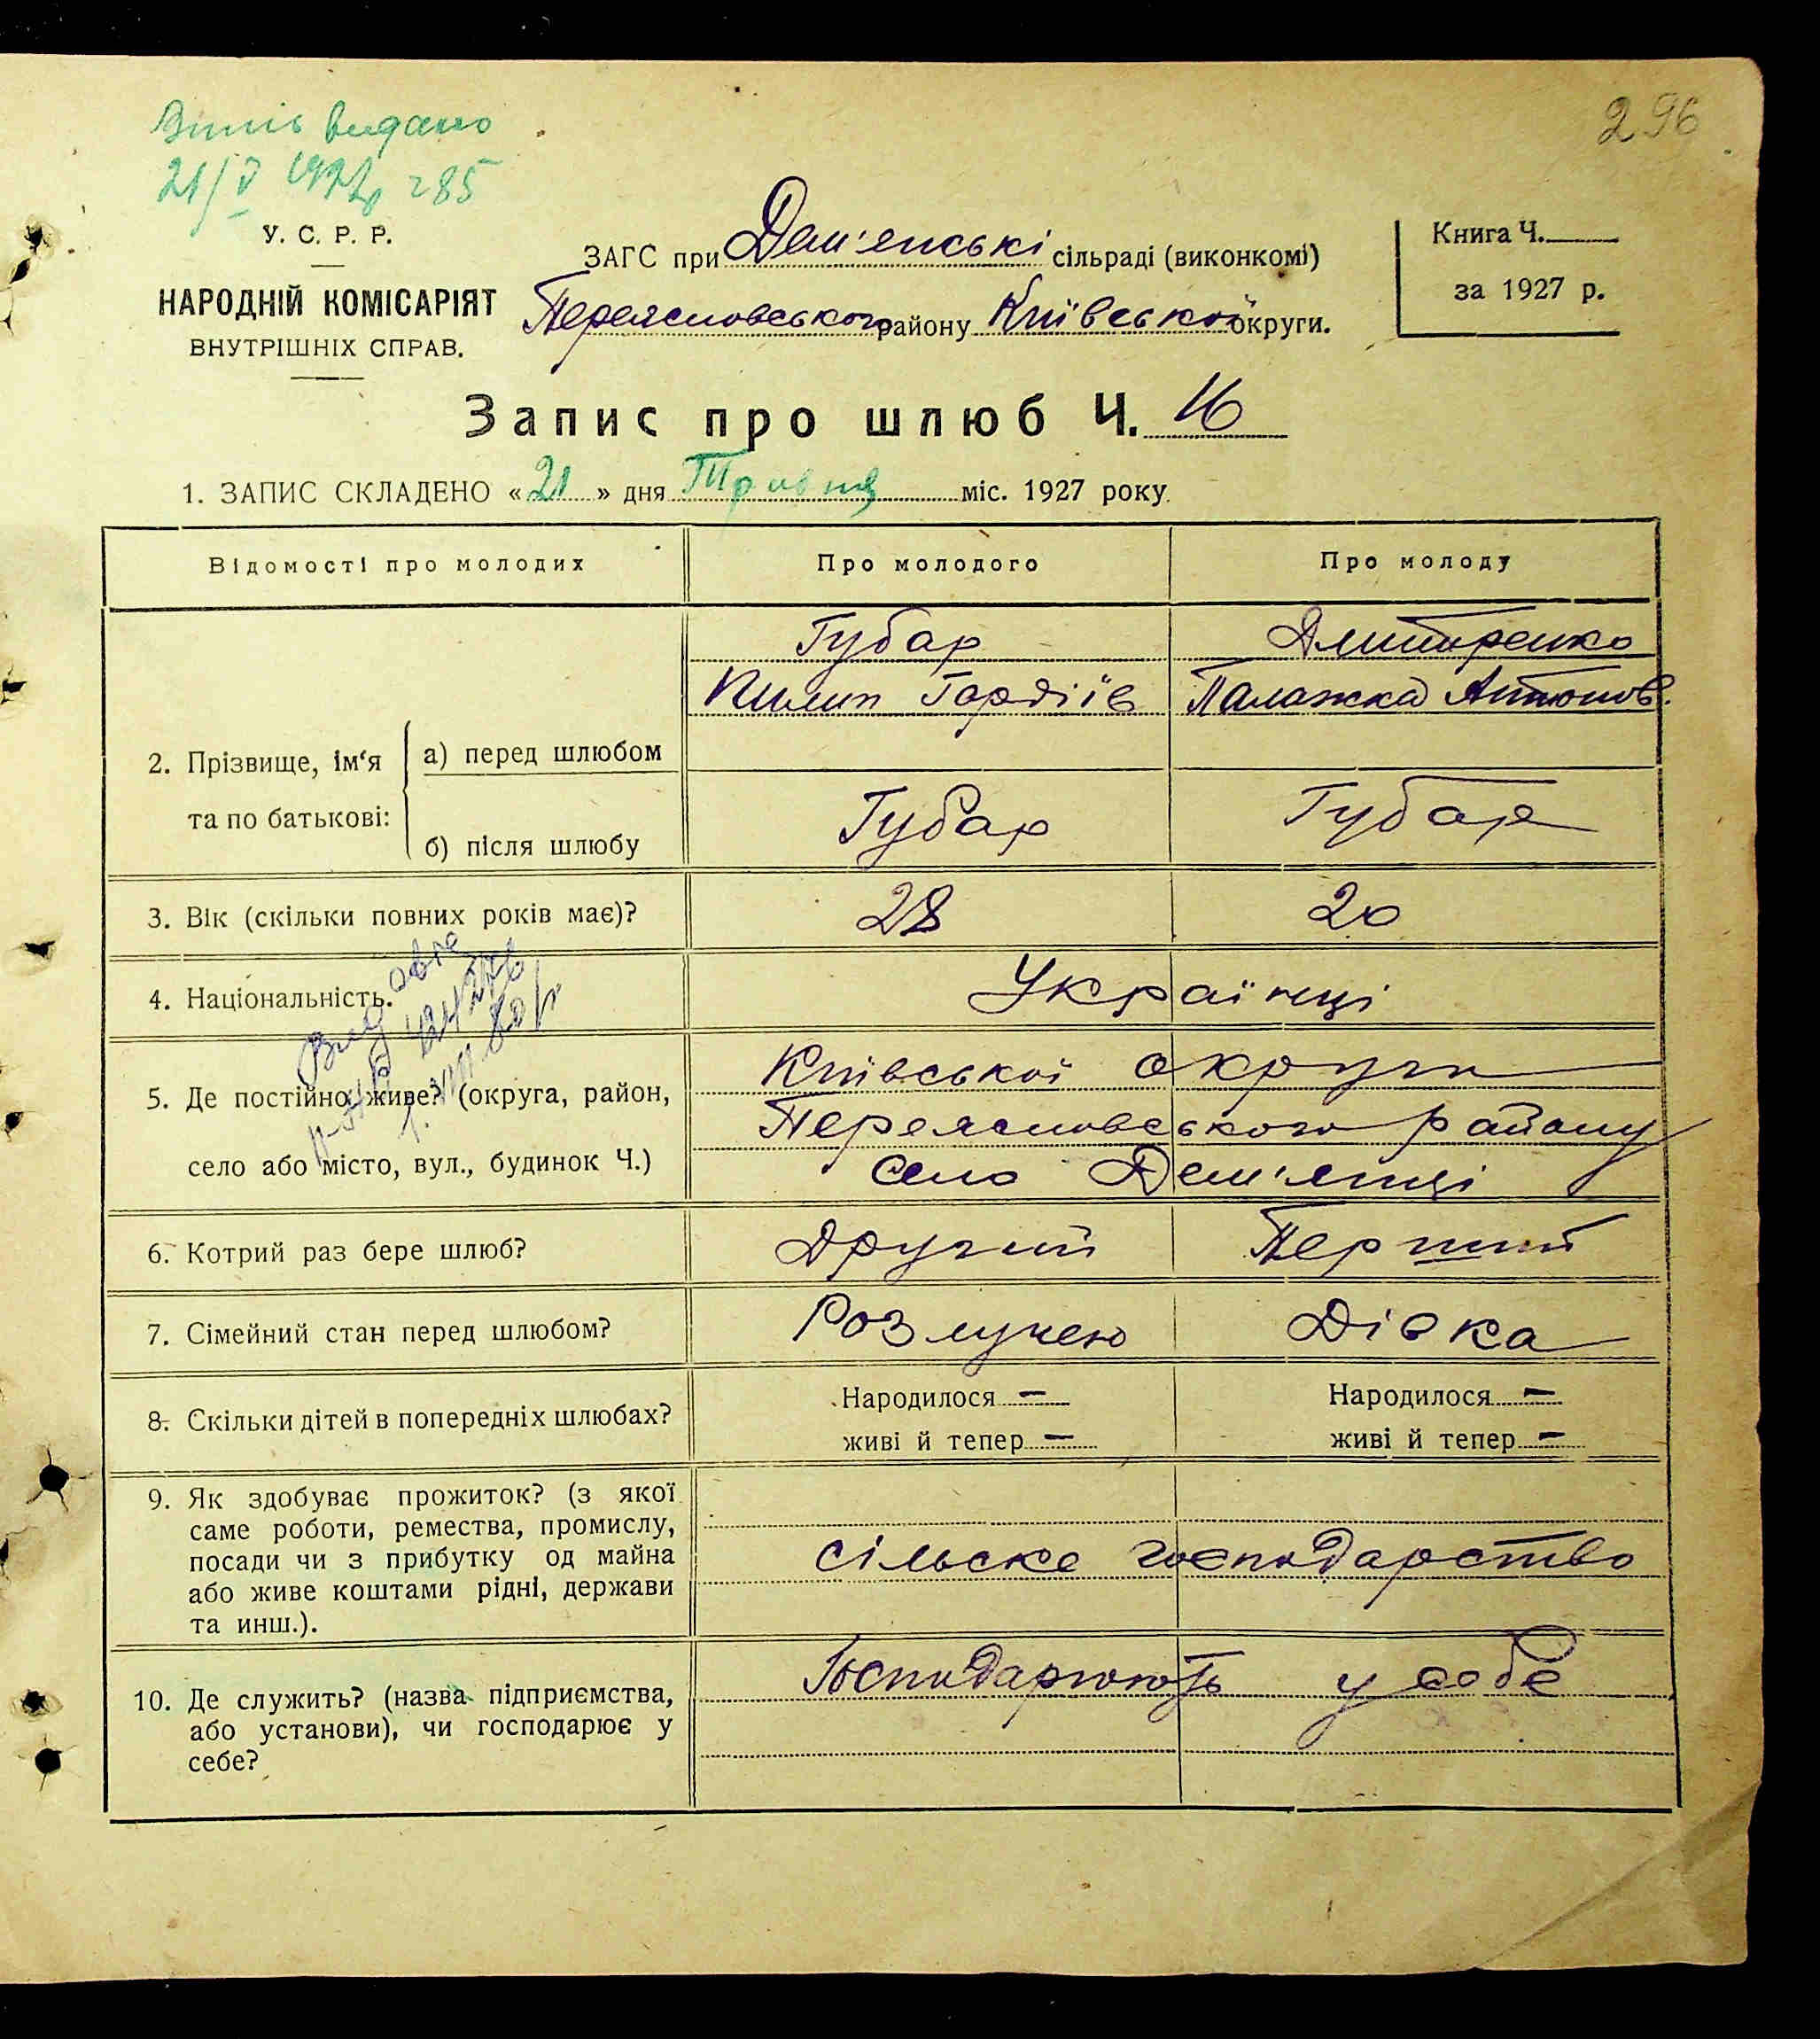 296
Витяг видано
21/V 1927 р 285
У. С. Р. Р.
НАРОДНІЙ КОМІСАРІЯТ
ВНУТРІШНІХ СПРАВ.
ЗАГС при Дем'енські сільраді (виконкомі)
Переясловського району Київської округи.
Книга Ч.
за 1927 р.
Запис про шлюб Ч. 16
1. ЗАПИС СКЛАДЕНО « 21 » дня Травня міс. 1927 року.
Відомості про молодих Про молодого Про молоду
2. Прізвище, ім'я та по батькові:
а) перед шлюбом
Губар Дмитренко
Пилип Гордіїв Палажка Антонов.
б) після шлюбу
Губар Губар
3. Вік (скільки повних років має)? 28 20
4. Національність. Українці
5. Де постійно живе? (округа, район,
село або місто, вул., будинок Ч.)
Київської округи
Переясловського району
село Дем'янці
6. Котрий раз бере шлюб? Другий Перший
7. Сімейний стан перед шлюбом? Розлучено Дівка
8. Скільки дітей в попередніх шлюбах? Народилося — Народилося —
живі й тепер — живі й тепер —
9. Як здобуває прожиток? (з якої
саме роботи, ремества, промислу,
посади чи з прибутку од майна
або живе коштами рідні, держави
та инш.).
сільске господарство
10. Де служить? (назва підприємства,
або установи), чи господарює у
себе?
Господарюють у себе